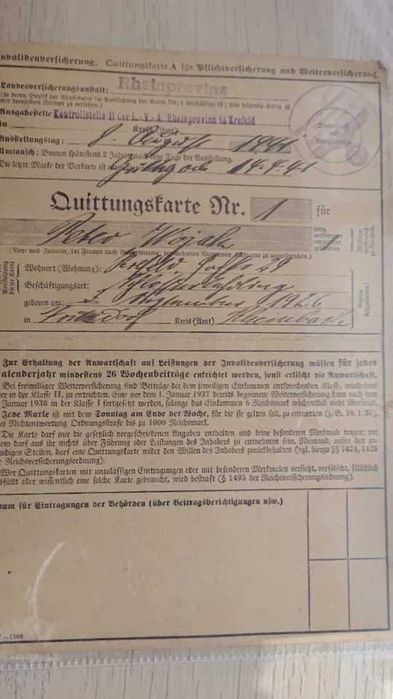 nvalidenversicherung. Quittungskarte A für Pflichtversicherung und Weiterversicherung
Landesversicherungsanstalt: Rheinprovinz
Ausgabestelle Kontrollstelle II der L.-V.-A. Rheinprovinz in Krefeld
in Kreis (Amt)
Ausstellungstag: 8. August 1941
Umtausch: Binnen spätestens 2 Jahren nach dem Tage der Ausstellung.
Die letzte Marke der Vorkarte ist
Quittungskarte Nr. 1 für
Peter
Wohnort (Wohnung): Krefeld 29
Beschäftigungsart:
geboren am: September 1926
in Kreis (Amt)
Zur Erhaltung der Anwartschaft auf Leistungen der Invalidenversicherung müssen für jedes
alenderjahr mindestens 26 Wochenbeiträge entrichtet werden, sonst erlischt die Anwartschaft.
Bei freiwilliger Weiterversicherung sind Beiträge der dem jeweiligen Einkommen entsprechenden Klasse, mindestens
er in der Klasse II, zu entrichten. Eine vor dem 1. Januar 1937 bereits begonnene Weiterversicherung kann nach dem
Januar 1938 in der Klasse I fortgesetzt werden, solange das Einkommen 6 Reichsmark wöchentlich nicht übersteigt.
Jede Marke ist mit dem Sonntag am Ende der Woche, für die sie gelten soll, zu entwerten (z. B. 16. 1. 38),
er Nichtentwertung Ordnungsstrafe bis zu 1000 Reichsmark.
Die Karte darf nur die gesetzlich vorgeschriebenen Angaben enthalten und keine besonderen Merkmale tragen; vor
em darf aus ihr nichts über Führung oder Leistungen des Inhabers zu entnehmen sein. Niemand, außer den zu
ndigen Stellen, darf eine Quittungskarte wider den Willen des Inhabers zurückbehalten (vgl. hierzu §§ 1424, 1425
r Reichsversicherungsordnung).
Wer Quittungskarten mit unzulässigen Eintragungen oder mit besonderen Merkmalen versieht, verfälscht, fälschlich
sfüllt oder wissentlich eine solche Karte gebraucht, wird bestraft (§ 1495 der Reichsversicherungsordnung).
aum für Eintragungen der Behörden (über Beitragsberichtigungen usw.)